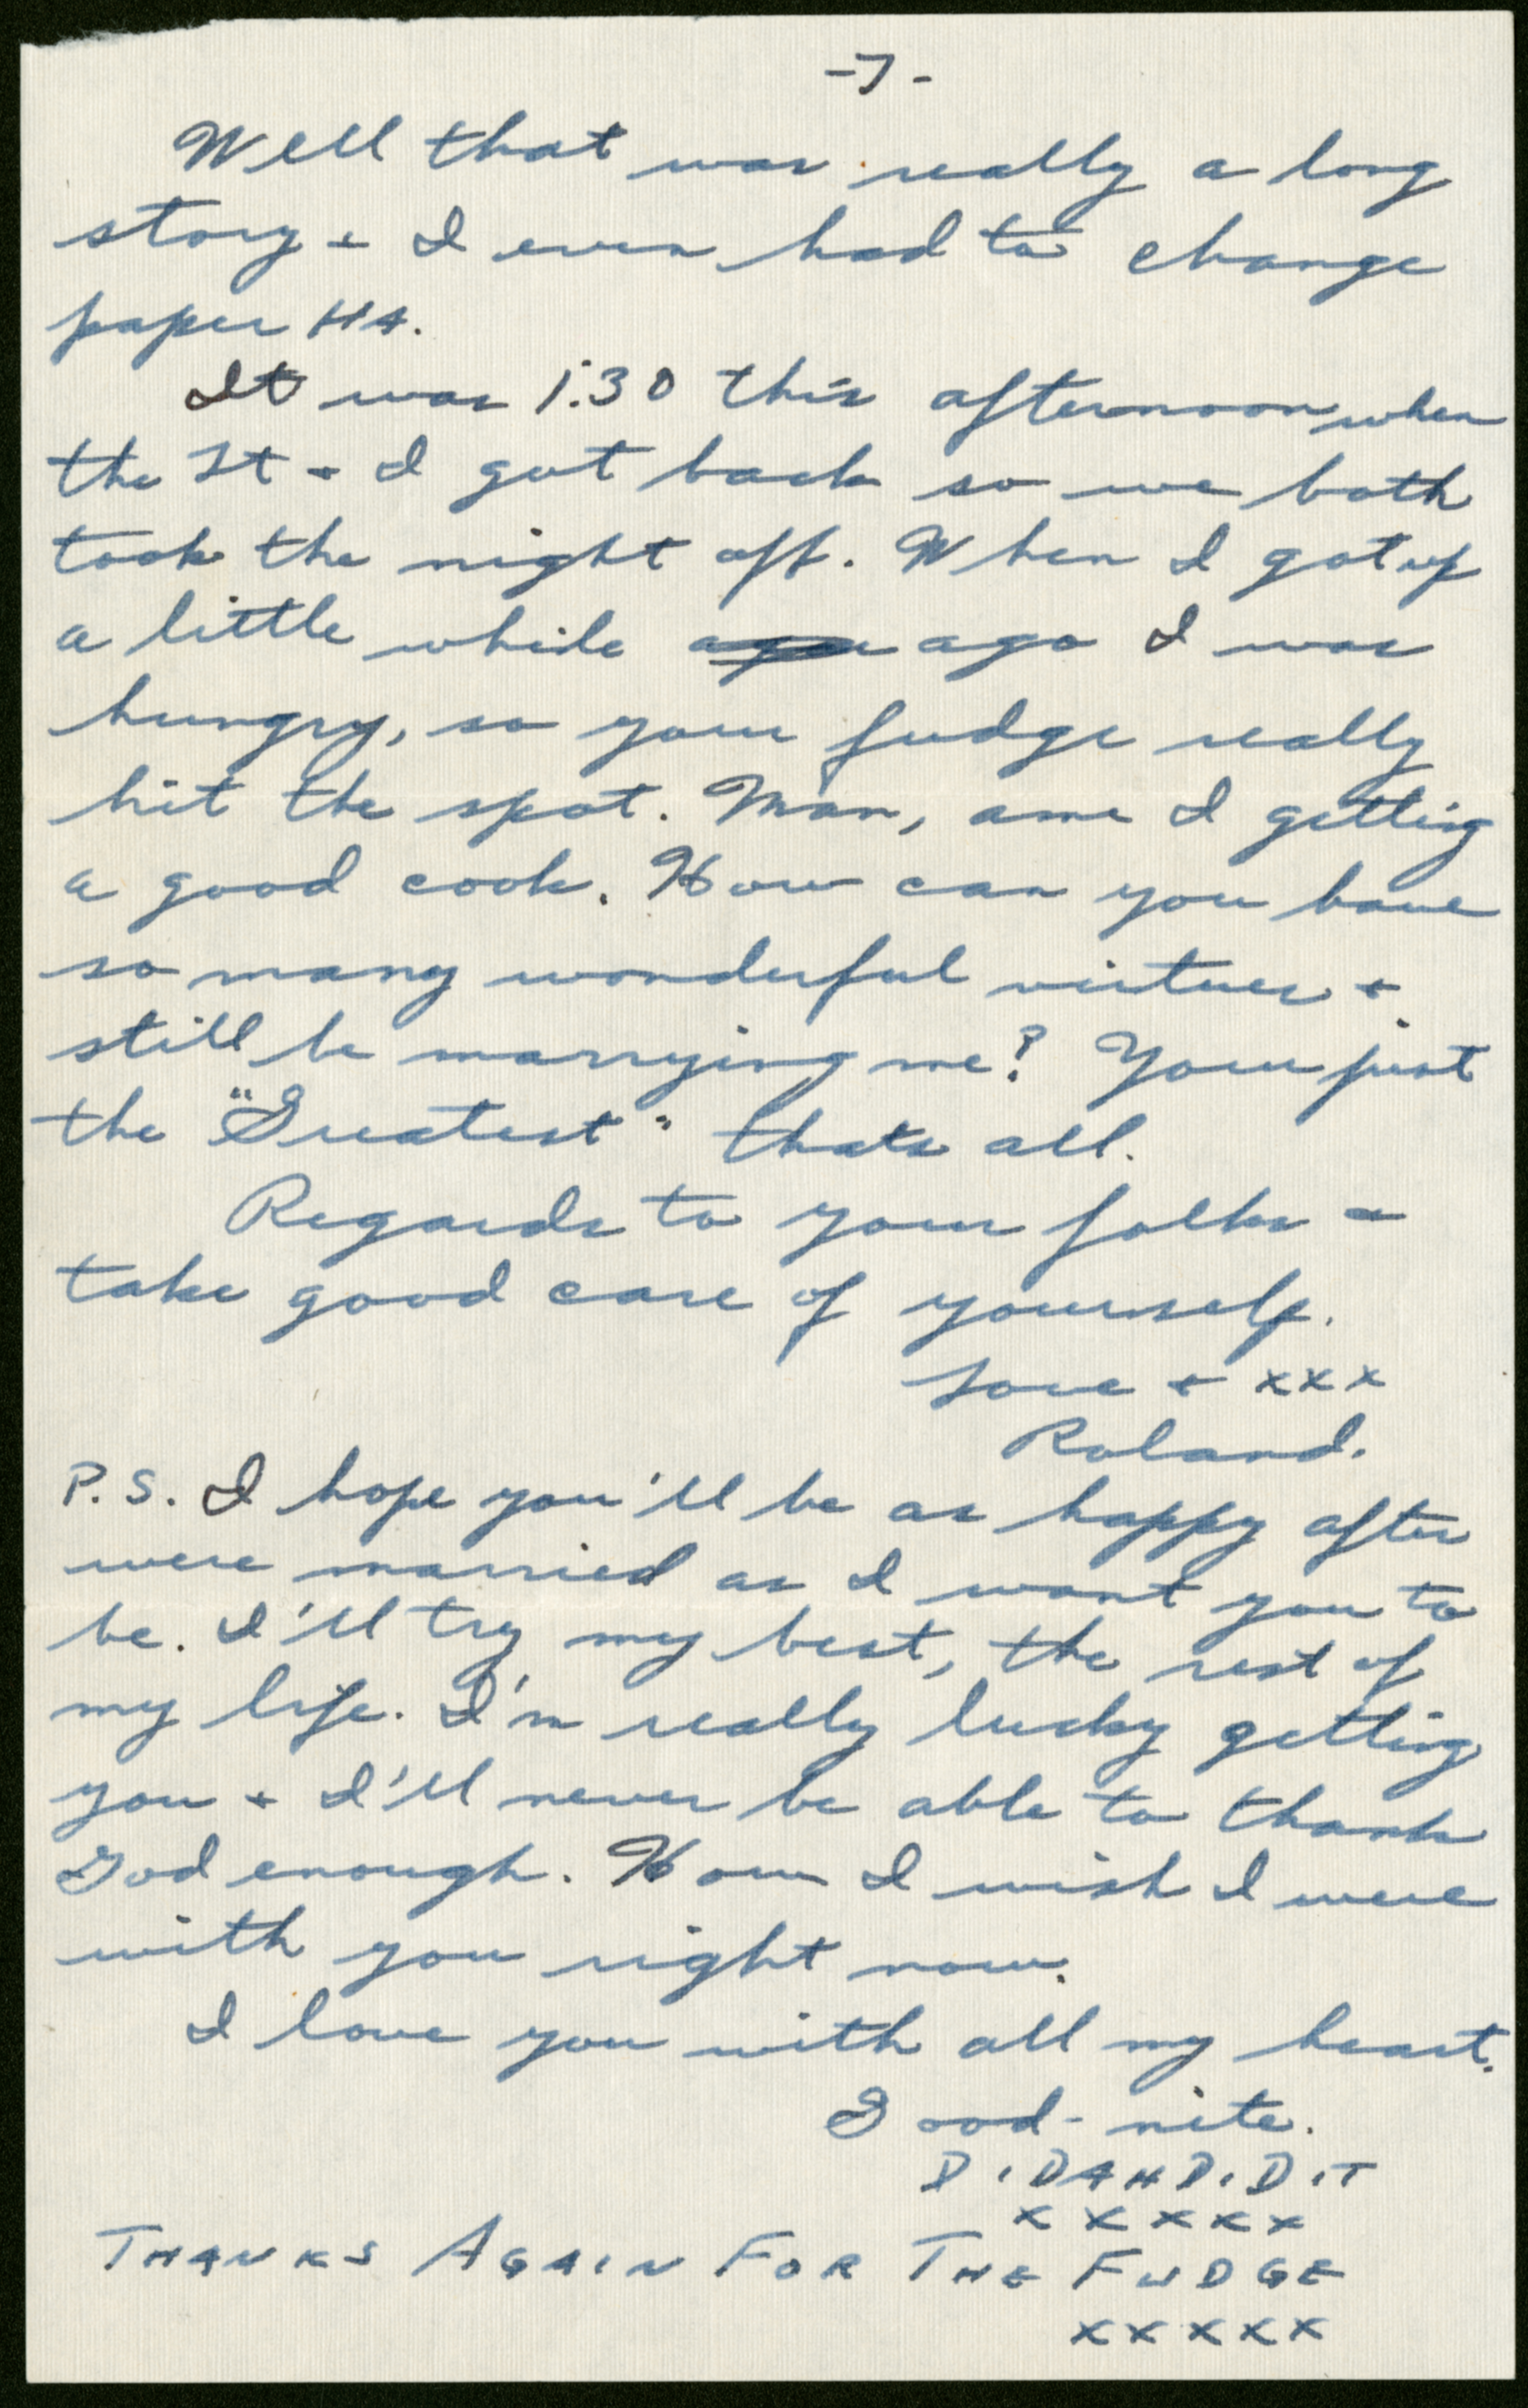 -7-
Well that was really a long
story + I even had to change
paper HA.
It was 1:30 this afternoon when
the Lt + I got back so we both
took the night off. When I got up
a little while ago I was
hungry, so your fudge really
hit the spot. Man, ame I getting
a good cook. How can you have
so many wonderful virtues +
still be marrying me? Your just
the "Greatest" thats all.
Regards to your folks +
take good care of yourself.
Love + xxx
Roland.
P.S. I hope you'll be as happy after
were married as I want you to
be. I'll try my best, the rest of
my life. I'm really lucky getting
you + I'll never be able to thank
God enough. How I wish I were
with you right now.
I love you with all my heart.
Good-nite.
DIDAHDIDIT
xxxxx
THANKS AGAIN FOR THE FUDGE
xxxxx